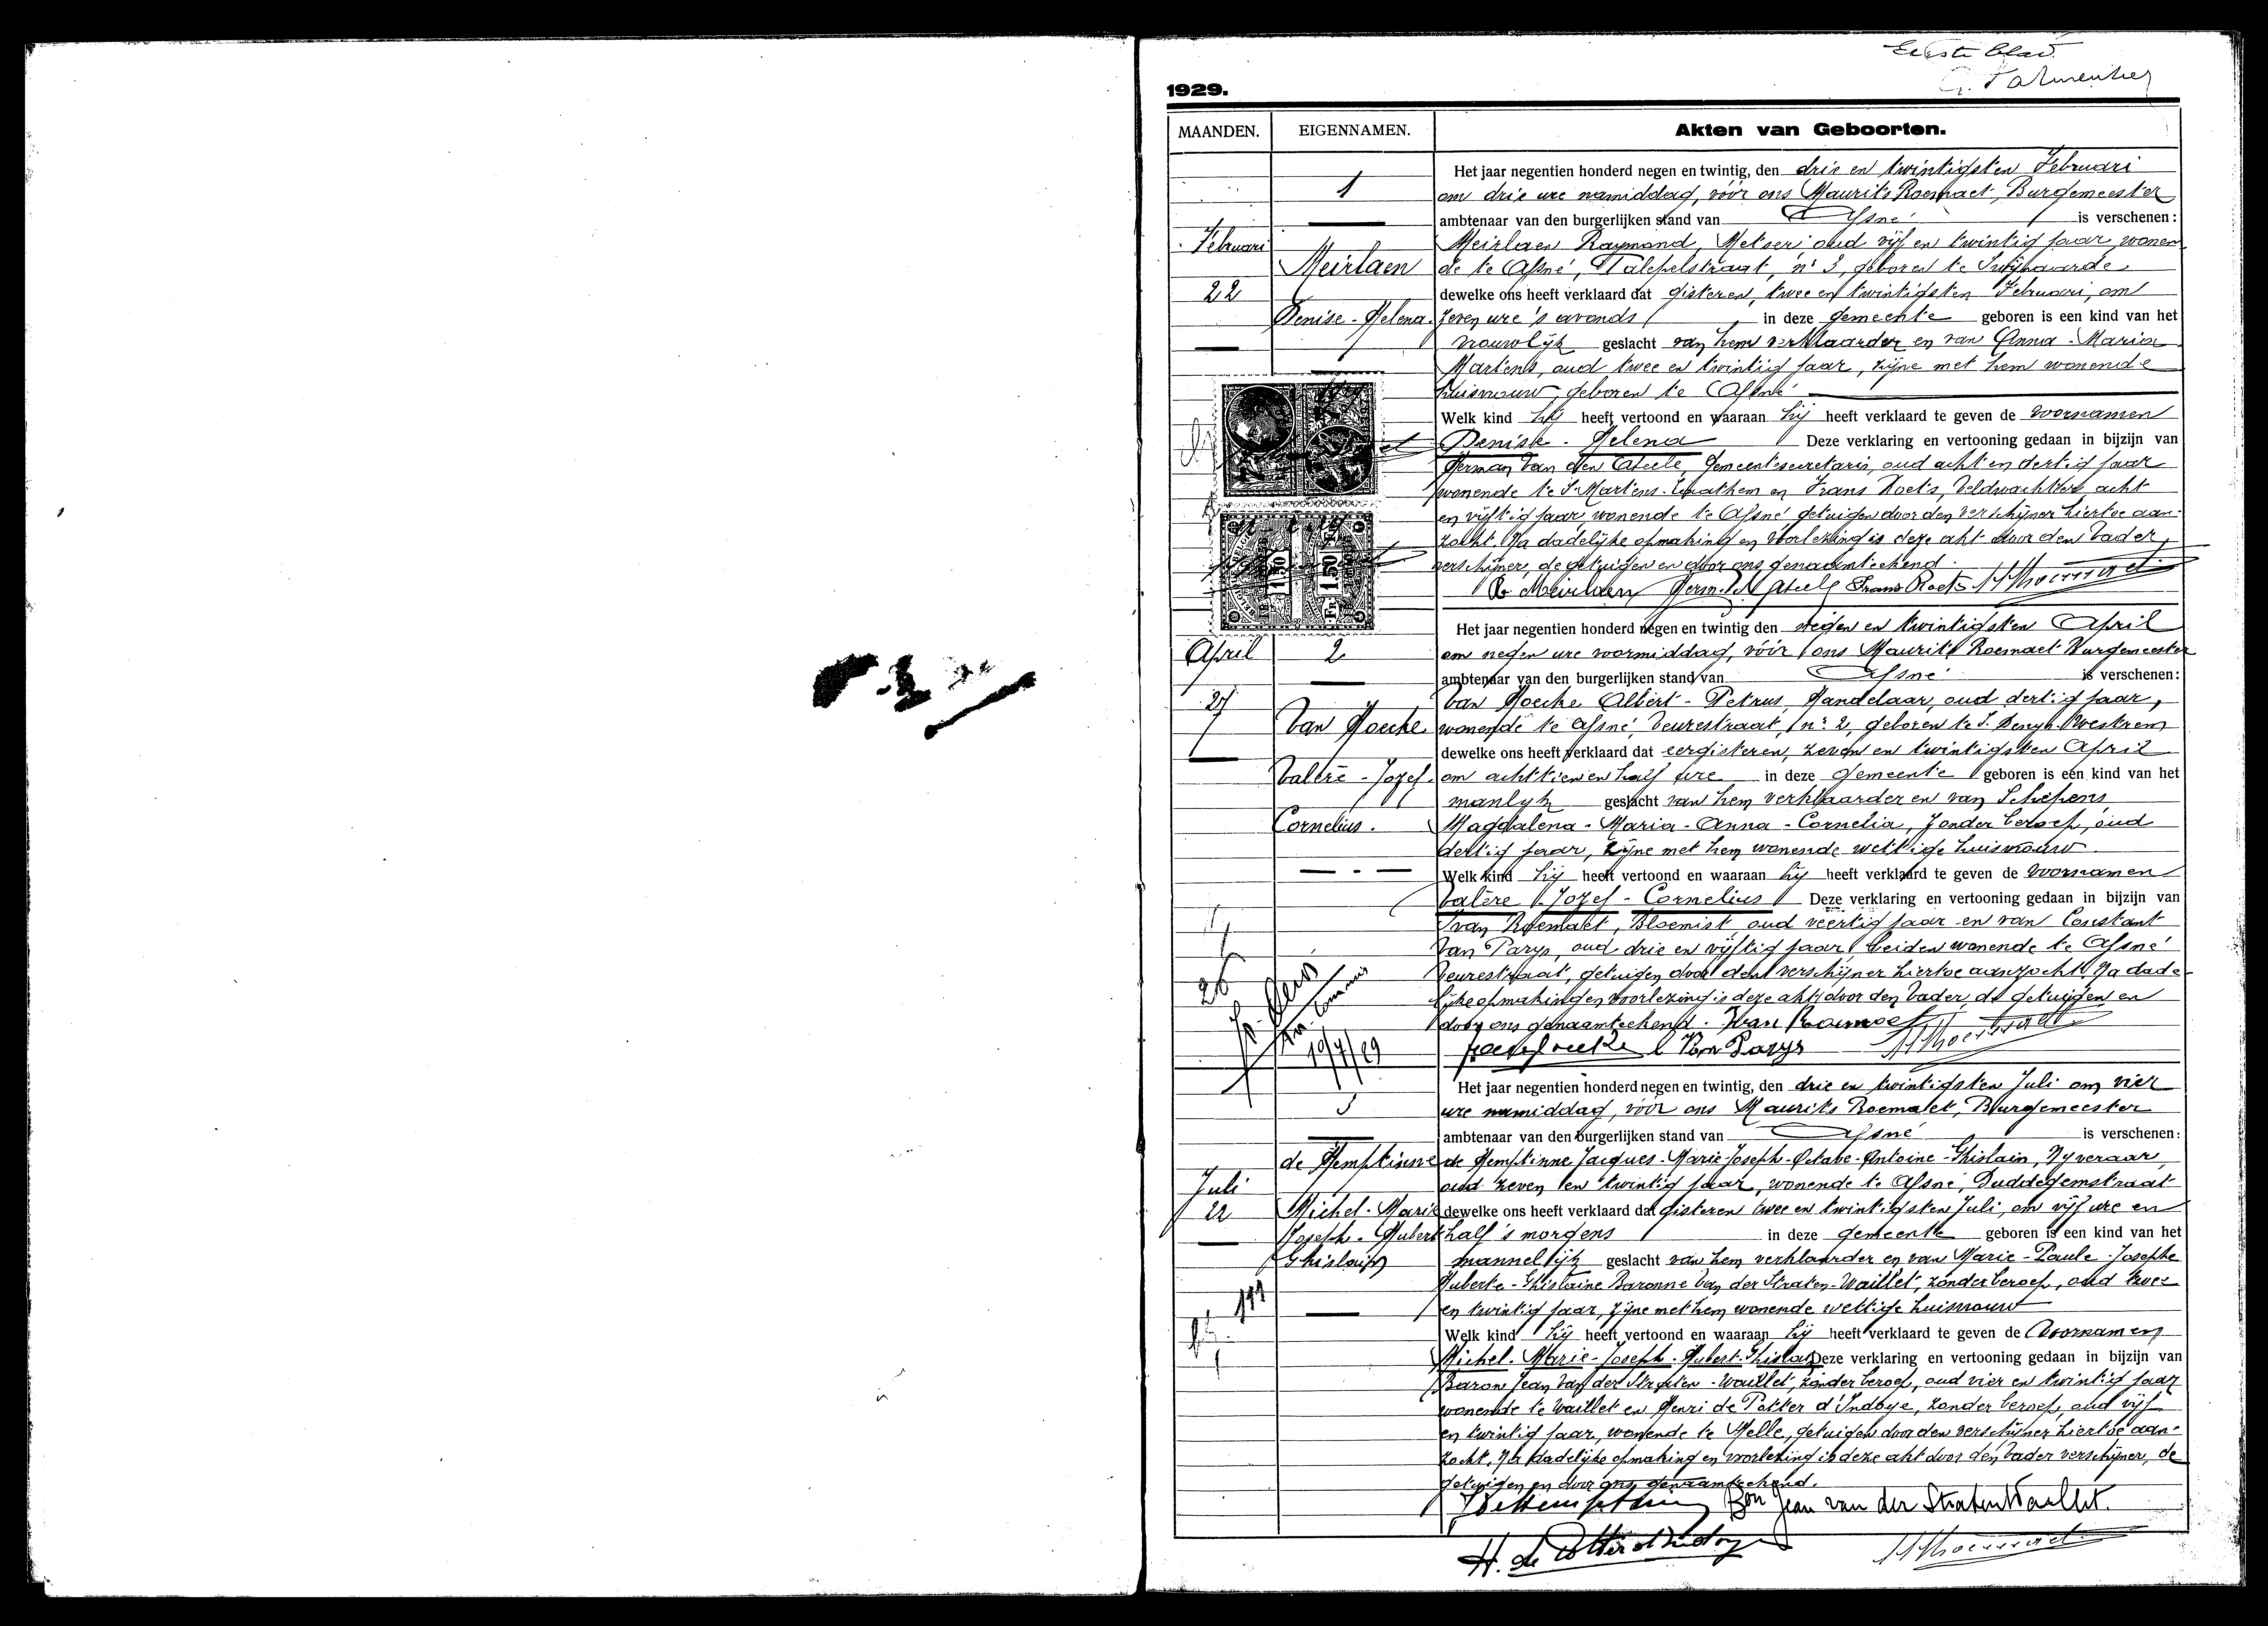 Eerste blad.
1929.
MAANDEN. EIGENNAMEN. Akten van Geboorten.
Februari
22
1
Meirlaen
Denise - Helena.
Het jaar negentien honderd negen en twintig, den drie en twintigsten Februari
om drie ure namiddag, vóór ons Maurits Roemaet, Burgemeester
ambtenaar van den burgerlijken stand van Afsné is verschenen:
Meirlaen Raymond, Metser oud vijf en twintig jaar wonen
de te Afsné, nr 3, geboren te Swijnaarde
dewelke ons heeft verklaard dat gisteren, twee en twintigsten Februari, om
zeven ure 's avonds in deze gemeente geboren is een kind van het
vrouwlijk geslacht van hem verklaarder en van Anna - Maria
Martens, oud twee en twintig jaar, zijne met hem wonende
huisvrouw, geboren te Afsné
Welk kind hij heeft vertoond en waaraan hij heeft verklaard te geven de voornamen
Denise - Helena Deze verklaring en vertooning gedaan in bijzijn van
Herman Van den Abeele, Gemeentesecretaris, oud acht en dertig jaar
wonende te St Martens - Leathem en Frans Roets, Veldwachter acht
en vijftig jaar, wonende te Afsné getuigen door den verschijner hiertoe aan-
zocht. Na dadelijke opmaking en voorlezing is deze akt door den Vader,
verschijner, de getuigen en door ons genaamteekend.
R. Meirlaen Frans Roets M Roemaet
April
27
2
Van Hoecke
Valère - Jozef.
Cornelius.
Het jaar negentien honderd negen en twintig den negen en twintigsten April
om negen ure voormiddag, vóór ons Maurits Roemaet Burgemeester
ambtenaar van den burgerlijken stand van Afsné is verschenen:
Van Hoecke Albert - Petrus, Handelaar, oud dertig jaar,
wonende te Afsné, Veurestraat, nr 2, geboren te S. Denys - Westrem
dewelke ons heeft verklaard dat eergisteren, zeven en twintigsten April
om achttien en half ure in deze gemeente geboren is een kind van het
manlyk geslacht van hem verklaarder en van Schepens
Magdalena - Maria - Anna - Cornelia, zonder beroep, oud
dertig jaar, zijne met hem wonende wettige huisvrouw
Welk kind hij heeft vertoond en waaraan hij heeft verklaard te geven de voornamen
Valère - Jozef - Cornelius Deze verklaring en vertooning gedaan in bijzijn van
Ivan Roemaet, Bloemist oud veertig jaar en van Constant
Van Parys, oud drie en vijftig jaar, beiden wonende te Afsné
Veurestraat, getuigen door den verschijner hiertoe aanzocht. Na dade-
lijke opmaking en voorlezing is deze akt door den Vader, de getuigen en
door ons genaamteekend. Ivan Roemaet
C Van Parys M Roemaet
10/7/29
Juli
22
3
de Hemptinne
Michel - Marie
Joseph - Hubert
Ghislain
Het jaar negentien honderd negen en twintig, den drie en twintigsten Juli om vier
ure namiddag, vóór ons Maurits Roemaet, Burgemeester
ambtenaar van den burgerlijken stand van Afsné is verschenen:
de Hemptinne Jacques - Marie - Joseph - Octave - Antoine - Ghislain, Nyveraar,
oud zeven en twintig jaar, wonende te Afsné, Duddegemstraat
dewelke ons heeft verklaard dat gisteren twee en twintigsten Juli, om vijf ure en
half 's morgens in deze gemeente geboren is een kind van het
mannelijk geslacht van hem verklaarder en van Marie - Paule - Josephe
Huberte - Ghislaine Baronne van der Straten - Waillet, zonder beroep, oud twee
en twintig jaar, zijne met hem wonende wettige huisvrouw
Welk kind hij heeft vertoond en waaraan hij heeft verklaard te geven de voornamen
Michel - Marie - Joseph - Hubert - Ghislain Deze verklaring en vertooning gedaan in bijzijn van
Baron Jean Van der Straten - Waillet, zonder beroep, oud vier en twintig jaar
wonende te Waillet en Henri de Potter d'Indoye, zonder beroep, oud vijf
en twintig jaar, wonende te Melle, getuigen door den verschijner hiertoe aan-
zocht. Na dadelijke opmaking en voorlezing is deze akt door den Vader verschijner, de
getuigen en door ons genaamteekend.
Bon Jean van der Straten Waillet.
H. de Potter d'Indoye M Roemaet